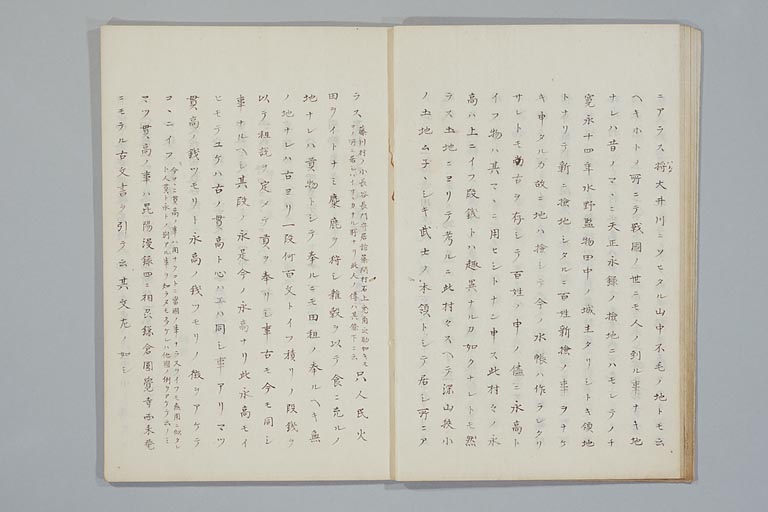 ニアラス将大井川ニソヒタル山中不毛ノ地トモ云
ヘキホトノ所ニテ戦国ノ世ニモ人ノ到ル事ナキ地
ナレハ昔ノマヽニ天正永録ノ検地ニハモレテノチ
寛永十四年水野監物田中ノ城主タリシトキ領地
トナリテ新ニ検地シタルニ百姓新検ノ事ヲナケ
キ申タルカ故ニ地ハ検シテ今ノ水帳ハ作ラレタリ
サレトモ古ヲ存シテ百姓ノ申ノ儘ニ永高ト
イフ物ハ其マヽニ用ヒシトナン申ス此村々ノ永
高ハ上ニイフ段銭トハ趣異ナルカ如クナレトモ然
ラス土地ニヨリテ考ルニ此村々スヘテ深山狭小
ノ土地ムチシキ武士ノ本領トシテ居シ所ニア
ラス藤川村ノ小長谷長門守居詰 只人民火
田ヲイトナミ麋鹿ヲ狩シ雑穀ヲ以テ食ニ充ルノ
地ナレハ貢物トシテ奉ルニモ田租ノ奉ルヘキ無
ノ地ナレハ古ヨリ一段何百文トイフ積リノ段銭ヲ
以テ租税ヲ定メテ貢ヲ奉リシ事古モ今モ同シ
事ナルヘシ其段ノ永是今ノ永高ナリ此永高モイ
ヒモテユケハ古ノ貫高ト心ハエハ同シ事アリマツ
貫高ノ銭ツモリト永高ノ銭ツモリノ徴ヲアケテ
コヽニイフ
マツ貫高ノ事ハ昆陽漫録四ニ相州鎌倉圓覚寺西来菴
ニモラル古文書ヲ引テ云其文左ノ如シ